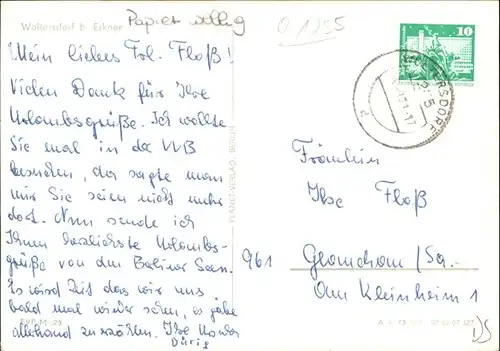 Woltersdorf b. Erkner
Papier wellig
01255
10
Mein liebes Frl. Floß!
Vielen Dank für Ihre
Urlaubsgrüße. Ich wollte
Sie mal in der VVB
besuchen, da sagte man
mir Sie seien nicht mehr
dort. Nun sende ich
Ihnen herzlichste Urlaubs-
grüße von den Berliner Seen.
Es wird Zeit das wir uns
bald mal wieder sehn, es gäbe
allerhand zu erzählen. Ihre
Dürig
PLANET-VERLAG, BERLIN
Fräulein
Ilse Floß
961 Glauchau/Sa.
Am Kleinheim 1